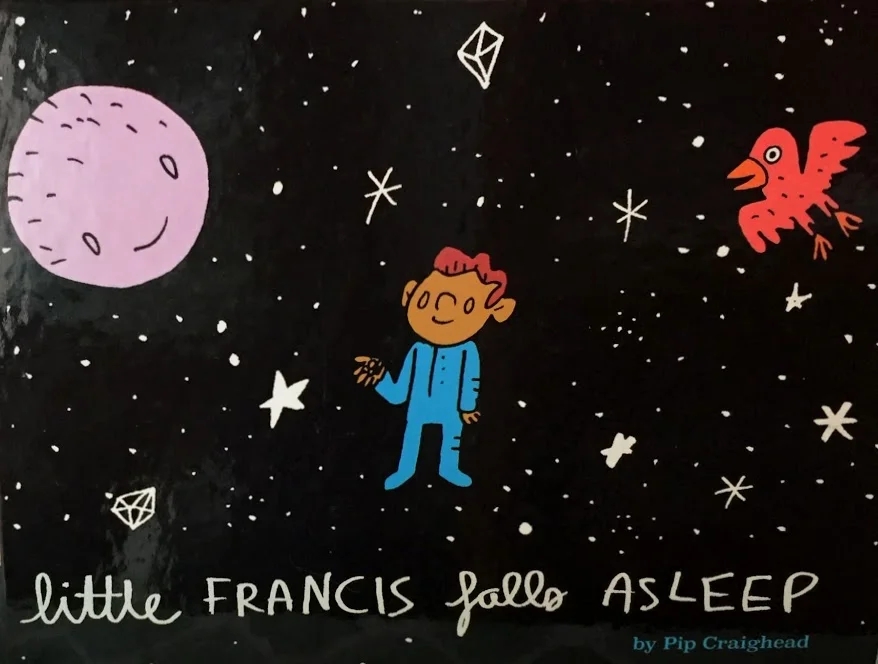 little FRANCIS falls ASLEEP
by Pip Craighead